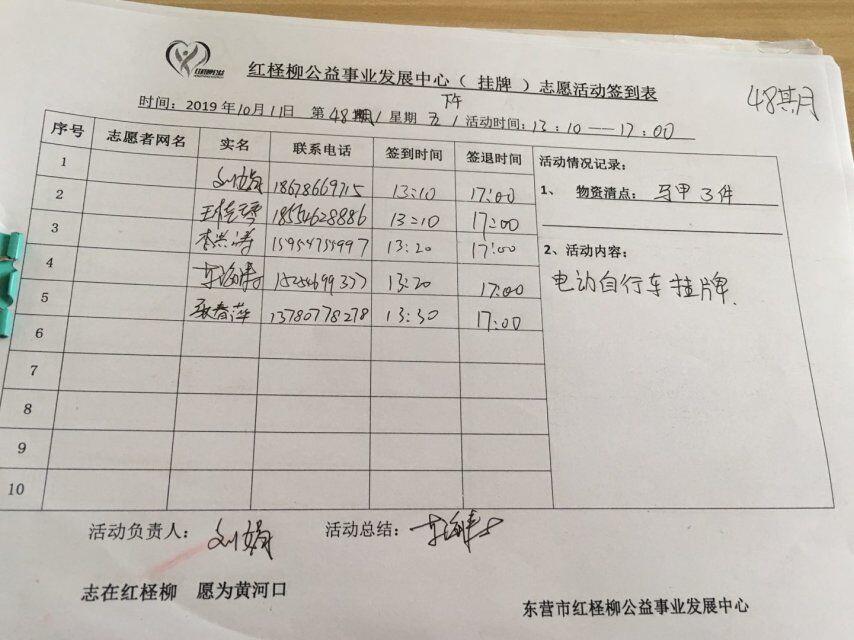 红柽柳公益事业发展中心（挂牌）志愿活动签到表
48期
下午
时间：2019年10月11日 第48期 / 星期五 / 活动时间：13:10——17:00
序号 志愿者网名 实名 联系电话 签到时间 签退时间 活动情况记录：
1 刘娟 18678669715 13:10 17:00
1、物资清点：马甲3件
2 18554628886 13:20 17:00
3 李兴涛 15954754997 13:20 17:00
2、活动内容：
电动自行车挂牌.
4 13:20 17:00
5 张春萍 13780778278 13:30 17:00
6
7
8
9
10
活动负责人：刘娟 活动总结：
志在红柽柳 愿为黄河口
东营市红柽柳公益事业发展中心